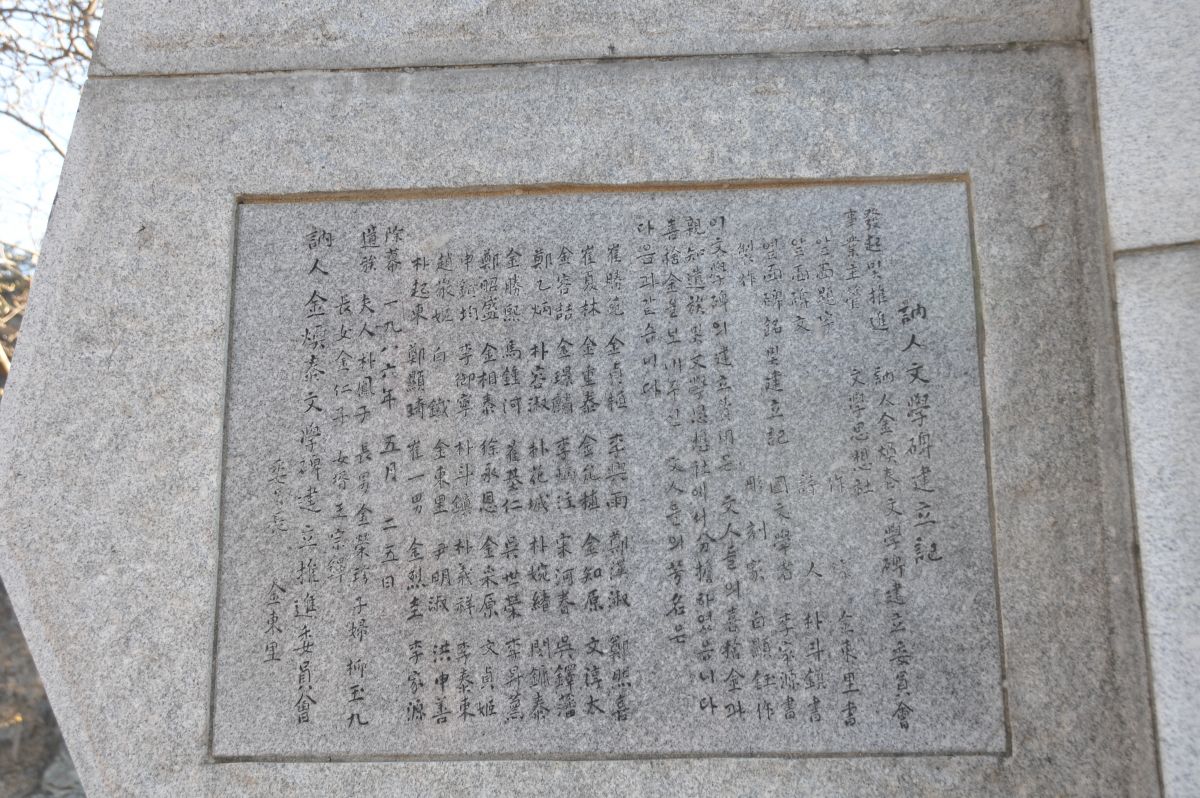 訥人文學碑建立記
發起및推進 訥人金煥泰文學碑建立委員會
事業主管 文學思想社
앞面題字 金東里書
앞面碑文 詩人 朴斗鎭書
옆面碑銘및建立記 國文學者 李家源書
製作 彫刻家 白顯鈺作
이文學碑의建立費用은 文人들의喜捨金과
親知遺族및文學思想社에서分擔하였읍니다
喜捨金을보내주신 文人들의芳名은
다음과같읍니다
崔勝範 金貞植 李興雨 鄭漢淑 鄭熙喜
崔夏林 金重泰 金能植 金知原 文淳太
金容誥 金璟麟 李炳注 宋河春 吳鐸藩
鄭乙炳 朴容淑 朴花城 朴婉緖 閔鏞泰
金勝熙 馬鍾河 崔基仁 吳世榮 李昇薰
鄭昭盛 金相泰 徐永恩 金采原 文貞姬
申錫均 李御寧 朴斗鎭 朴義祥 李泰東
趙敬姬 白鐵 金東里 尹明淑 洪申善
朴起東 鄭顯琦 崔一男 金烈圭 李家源
除幕 一九八六年 五月 二五日
遺族 夫人朴鳳子 長男金榮珍 子婦 柳玉九
長女金仁子 女壻王宗鐸
訥人金煥泰文學碑建立推進委員會
委員長 金東里